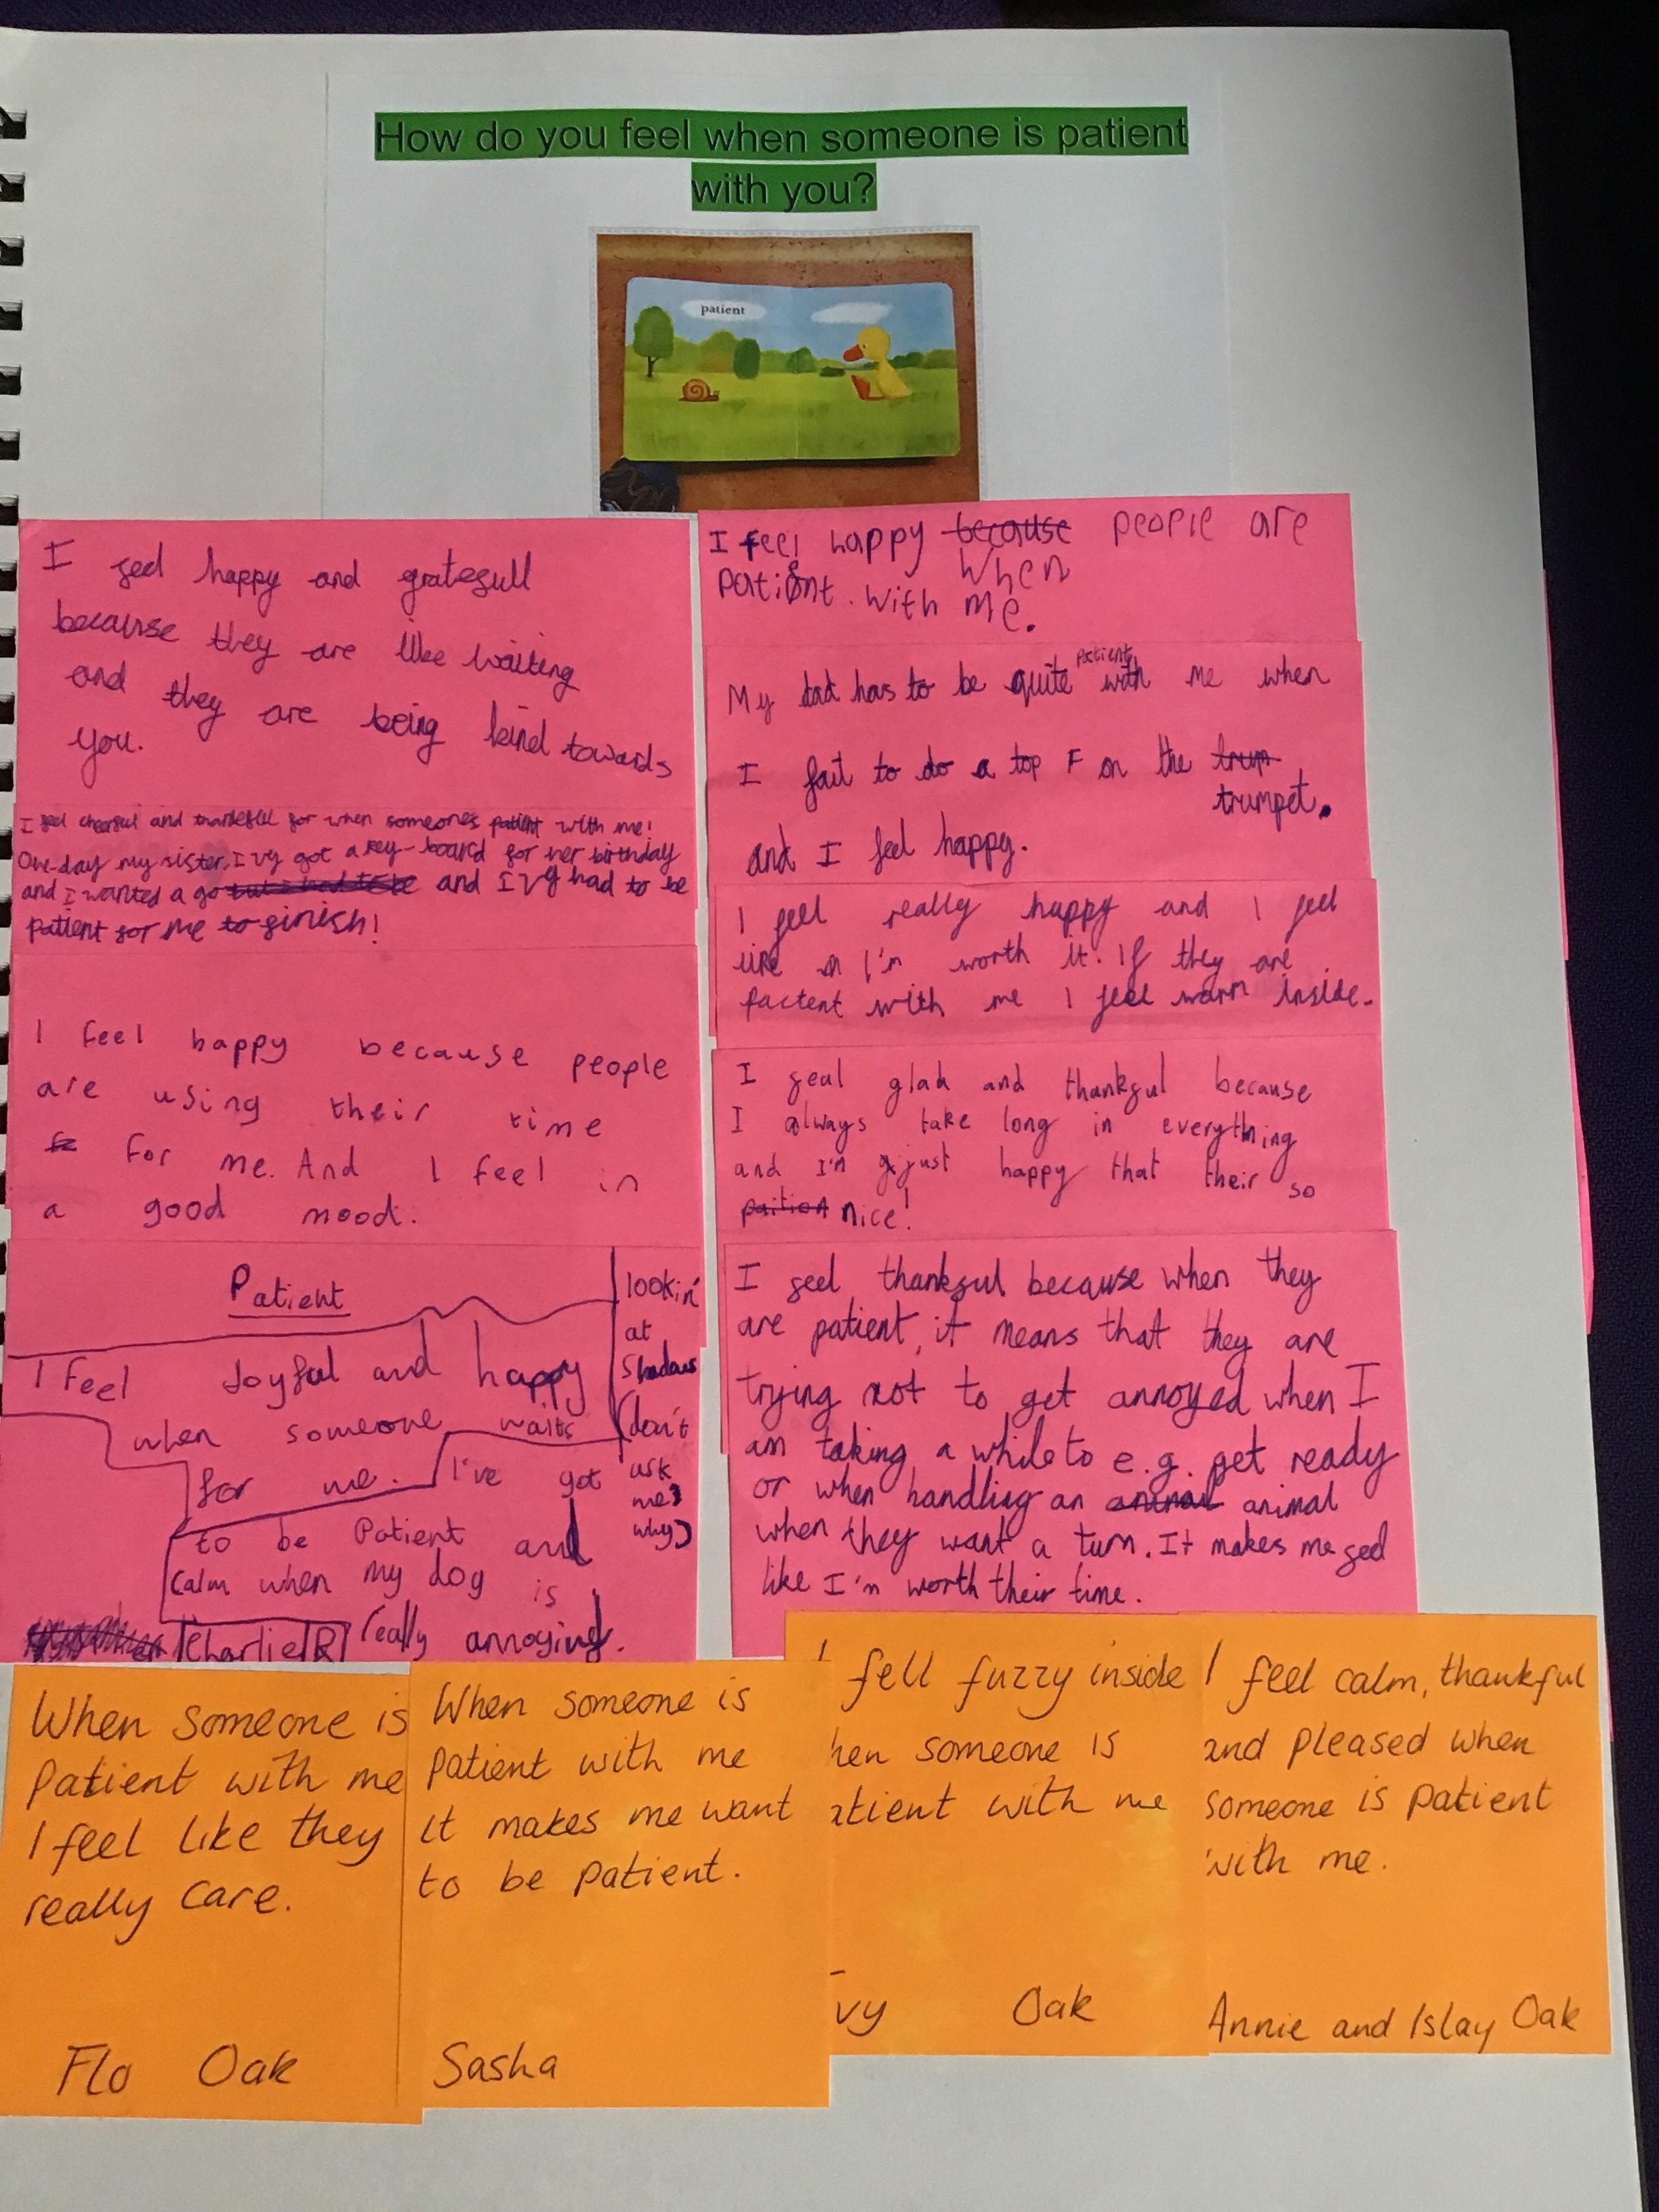 How do you feel when someone is patient
with you?
patient
I feel happy and gratefull
because they are like waiting
and they are being kind towards
you.
I feel cheerful and thankfull for when someones patient with me!
One-day my sister, Ivy got a key-board for her birthday
and I wanted a go but i had to be and Ivy had to be
patient for me to finish!
I feel happy because people
are using their time
for me. And I feel in
a good mood.
Patient
I feel Joyful and happy
when someone waits
for me. I've got
to be Patient and
Calm when my dog is
really annoying.
Charlie R
lookin'
at
Shadows
(don't
ask
me
why)
I feel happy because people are
when
patient. with me.
My dad has to be quite patient with me when
I fail to do a top F on the trum
trumpet.
and I feel happy.
I feel really happy and I feel
like I'm worth it. If they are
pactent with me I feel warm inside.
I feal glad and thankful because
I always take long in everything
and I'm just happy that their so
paition nice!
I feel thankful because when they
are patient, it means that they are
trying not to get annoyed when I
am taking a while to e.g. get ready
or when handling an animal animal
when they want a turn. It makes me feel
like I'm worth their time.
When someone is
Patient with me
I feel like they
really care.
Flo Oak
When someone is
patient with me
it makes me want
to be patient.
Sasha
I fell fuzzy inside
hen someone is
atient with me
vy Oak
I feel calm, thankful
and pleased when
someone is patient
with me.
Annie and Islay Oak